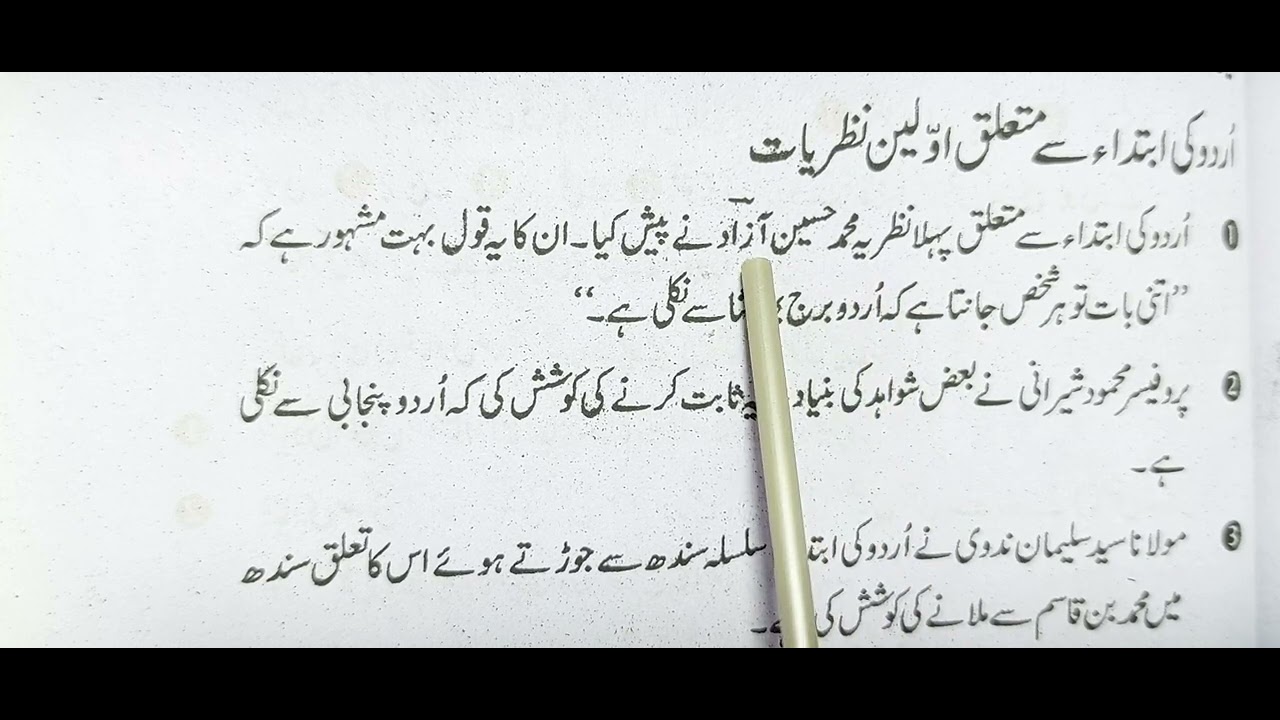 اُردو کی ابتداء سے متعلق اوّلین نظریات
❶ اُردو کی ابتداء سے متعلق پہلا نظریہ محمد حسین آزاد نے پیش کیا۔ ان کا یہ قول بہت مشہور ہے کہ
”اتنی بات تو ہر شخص جانتا ہے کہ اُردو برج سے نکلی ہے۔“
❷ پروفیسر محمود شیرانی نے بعض شواہد کی بنیاد یہ ثابت کرنے کی کوشش کی کہ اُردو پنجابی سے نکلی
ہے۔
❸ مولانا سید سلیمان ندوی نے اُردو کی سلسلہ سندھ سے جوڑتے ہوئے اس کا تعلق سندھ
میں محمد بن قاسم سے ملانے کی کوشش کی ہے۔